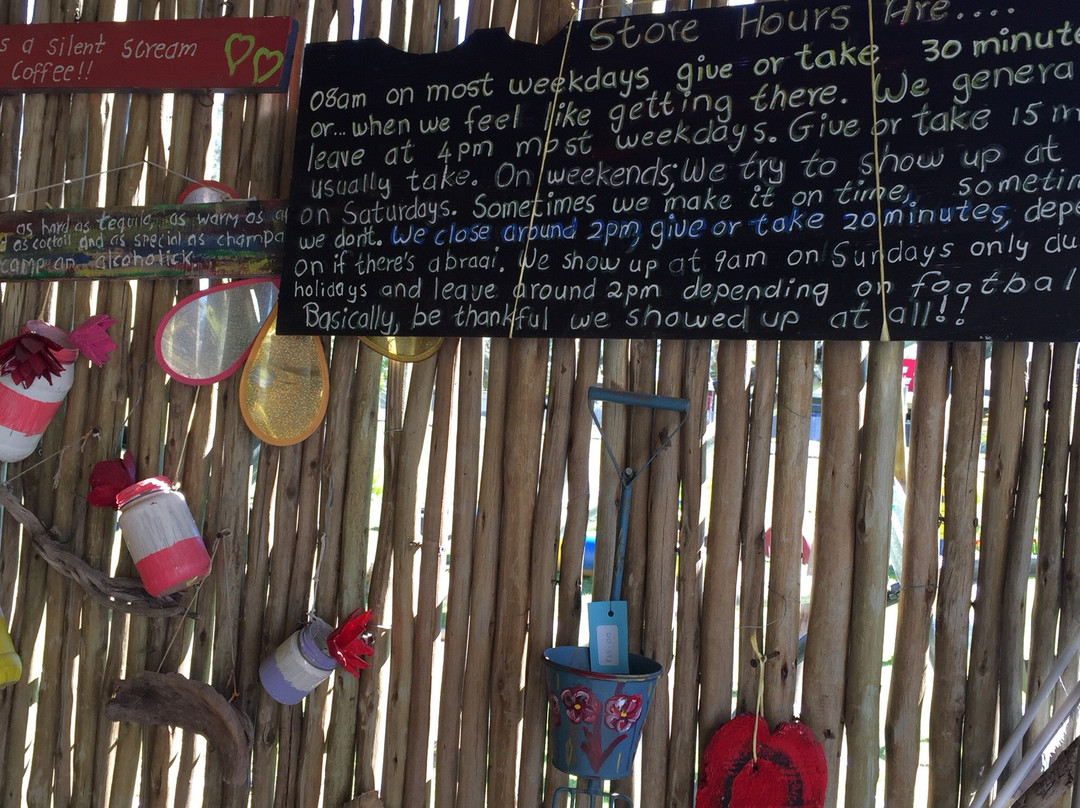 s a Silent Scream
Coffee!!
as hard as tequila, as warm as a
d as coctail and as special as champa
camp an alcoholick.
Store Hours Are....
08am on most weekdays give or take 30 minute
or... when we feel like getting there. We genera
leave at 4pm most weekdays. Give or take 15 m
usually take. On weekends; We try to show up at
on Saturdays. Sometimes we make it on time, sometim
we dont. We close around 2pm, give or take 20 minutes, depe
on if there's a braai. We show up at 9am on Sundays only du
holidays and leave around 2pm depending on footbal
Basically, be thankful we showed up at all!!